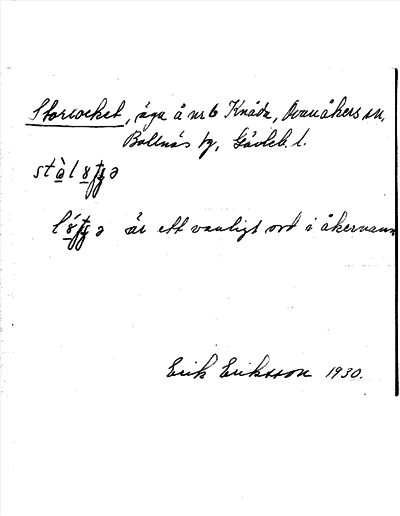 Storlocket, äga å nr 6 Knåda, Ovanåkers sn,
Bollnäs tg, Gävleb. l.
är ett vanligt ord i åkernamn
Erik Eriksson 1930.